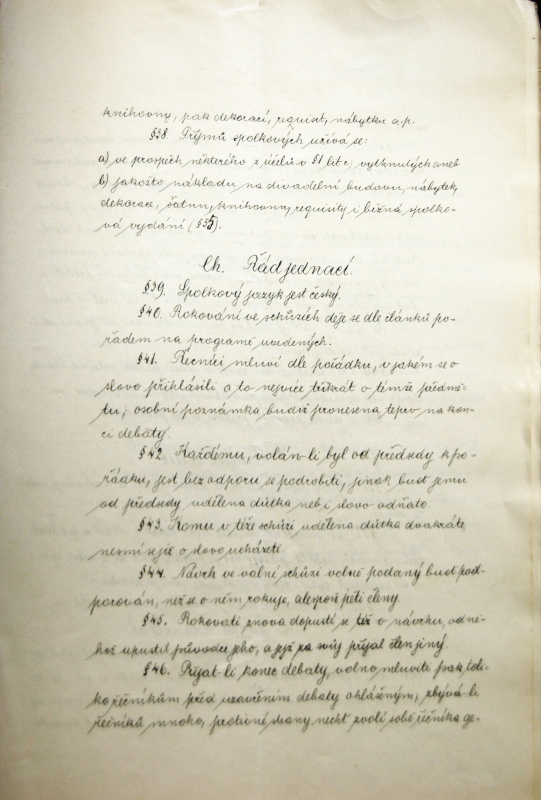 knihovny, pak dekorací, requisit, nábytku a.p.
§38. Příjmů spolkových užívá se:
a) ve prospěch některého z účelů v §1 lit c, vytknutých aneb
b) jakožto nákladu na divadelní budovu, nábytek,
dekorace, šatnu, knihovnu, requisity i běžná spolko-
vá vydání (§35).
Ch. Řád jednací.
§39. Spolkový jazyk jest český.
§40. Rokování ve schůzích děje se dle článků po-
řadem na programě uvedených.
§41. Řečníci mluví dle pořádku, v jakém se o
slovo přihlásili a to nejvíce třikrát o témže předmě-
tu; osobní poznámka budiž pronesena teprv na kon-
ci debaty.
§42. Každému, volán-li byl od předsedy k po-
řádku, jest bez odporu se podrobiti, jinak buď jemu
od předsedy udělena důtka neb i slovo odňato.
§43. Komu v téže schůzi udělena důtka dvakráte
nesmí se již o slovo ucházeti.
§44. Návrh ve valné schůzi volně podaný buď pod-
porován, než se o něm rokuje, alespoň pěti členy.
§45. Rokovati znova dopustí se též o návrhu, od ně-
hož upustil původce jeho, a jejž za svůj přijal člen jiný.
§46. Přijat-li konec debaty, volno mluviti pak toli-
ko řečníkům před uzavřením debaty ohlášeným; zbývá-li
řečníků mnoho, protivné strany nechť zvolí sobě řečníka ge-